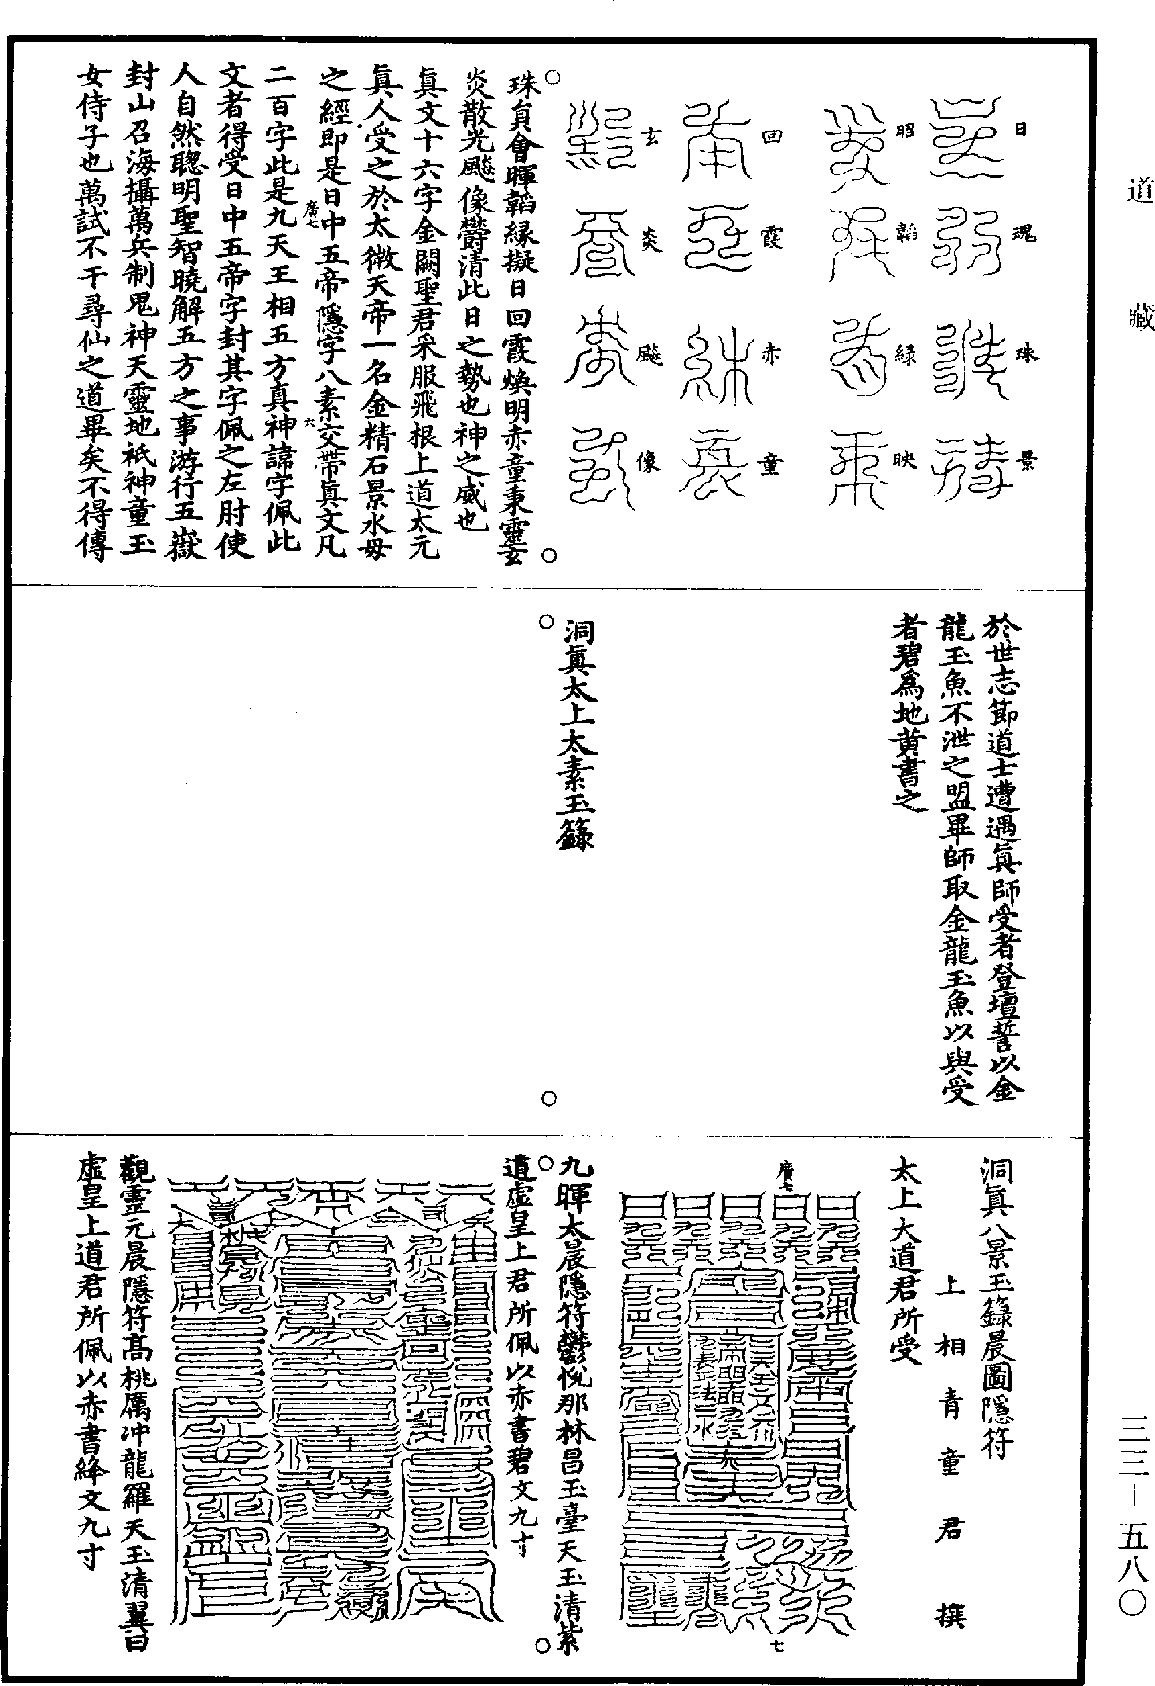 道藏
三三—五八〇
日魂珠景
昭韜緑映
回霞赤童
玄炎飈像
珠眞會暉韜緑擬日回霞煥明赤童秉靈玄
炎散光飈像欝清此日之勢也神之威也
眞文十六字金闕聖君采服飛根上道太元
眞人受之於太微天帝一名金精石景水母
之經即是日中五帝隱字八素交帶眞文凡
廣七
六
二百字此是九天王相五方真神諱字佩此
文者得受日中五帝字封其字佩之左肘使
人自然聰明聖智曉解五方之事游行五嶽
封山召海攝萬兵制鬼神天靈地祇神童玉
女侍子也萬試不干尋仙之道畢矣不得傳
於世志節道士遭遇眞師受者登壇誓以金
龍玉魚不泄之盟畢師取金龍玉魚以與受
者碧爲地黄書之
洞眞太上太素玉籙
洞眞八景玉籙晨圖隱符
上相青童君撰
太上大道君所受
廣七
七
九暉太晨隱符鬱悅那林昌玉臺天玉清紫
道虛皇上君所佩以赤書碧文九寸
觀靈元晨隱符髙桃厲冲龍羅天玉清翼日
虛皇上道君所佩以赤書絳文九寸